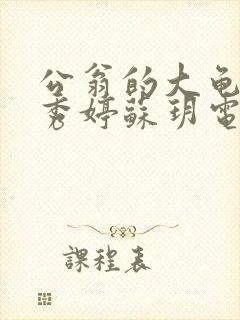 公翁的大龟
秀婷蘇玥電
課程表